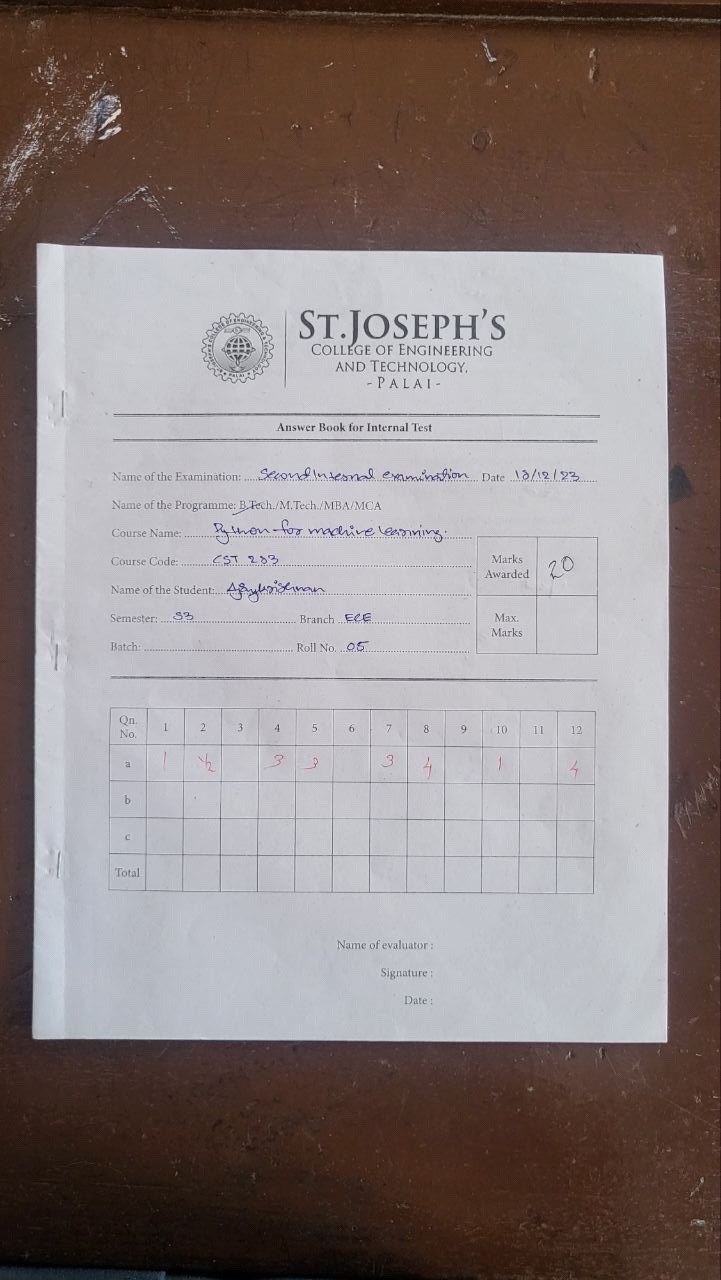 ST.JOSEPH'S
COLLEGE OF ENGINEERING
AND TECHNOLOGY,
-PALAI-
Answer Book for Internal Test
Name of the Examination: Second Internal examination Date 18/12/23
Name of the Programme: B.Tech./M.Tech./MBA/MCA
Course Name: Python for machine learning.
Course Code: CST 283
Marks Awarded 20
Name of the Student:
Semester: S3 Branch ECE
Max. Marks
Batch: Roll No. 05
Qn. No. 1 2 3 4 5 6 7 8 9 10 11 12
a 1 1/2 3 3 3 4 1 4
b
c
Total
Name of evaluator :
Signature :
Date :